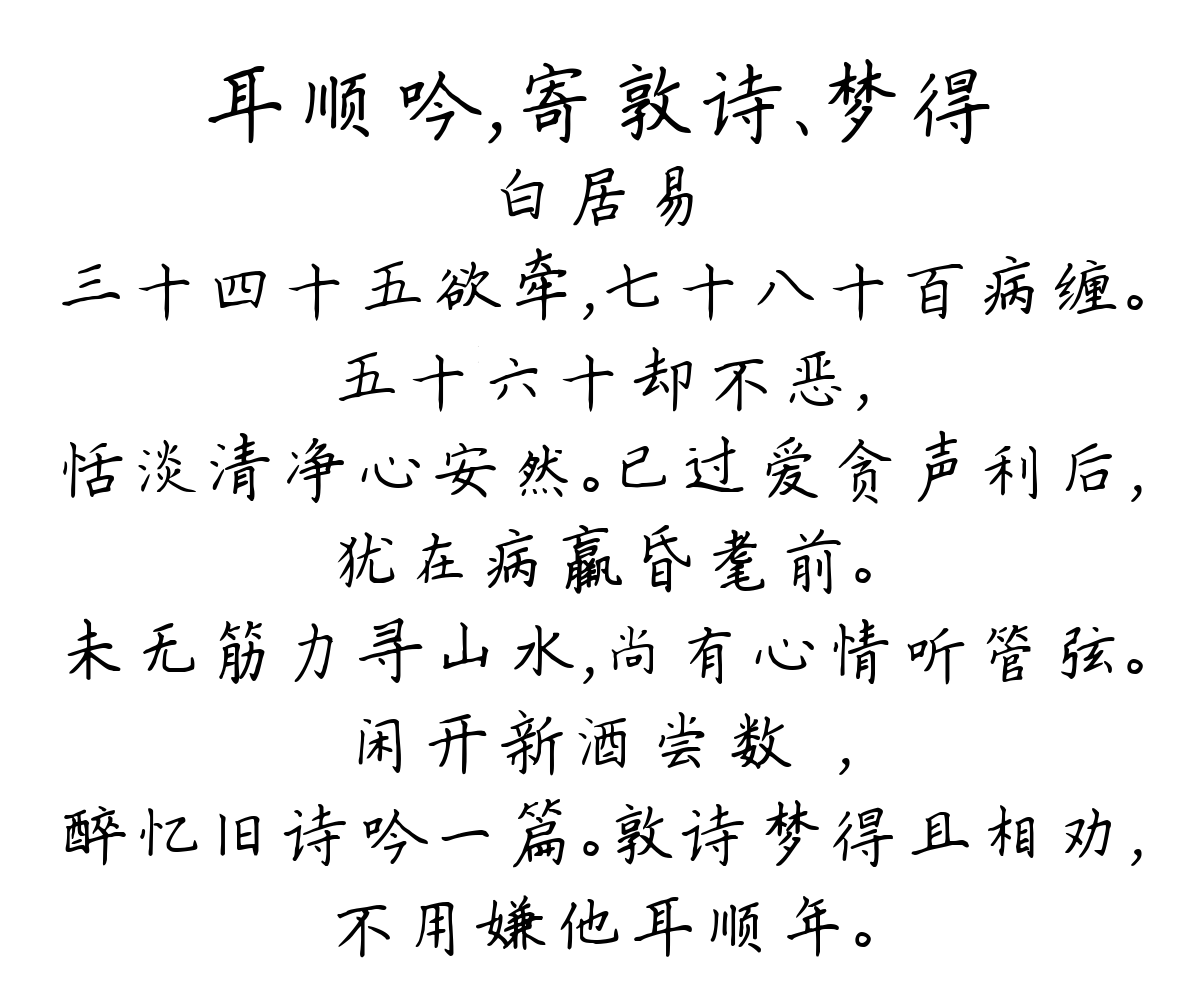 耳顺吟,寄敦诗、梦得
白居易
三十四十五欲牵,七十八十百病缠。
五十六十却不恶,
恬淡清净心安然。已过爱贪声利后,
犹在病羸昏耄前。
未无筋力寻山水,尚有心情听管弦。
闲开新酒尝数 ,
醉忆旧诗吟一篇。敦诗梦得且相劝,
不用嫌他耳顺年。